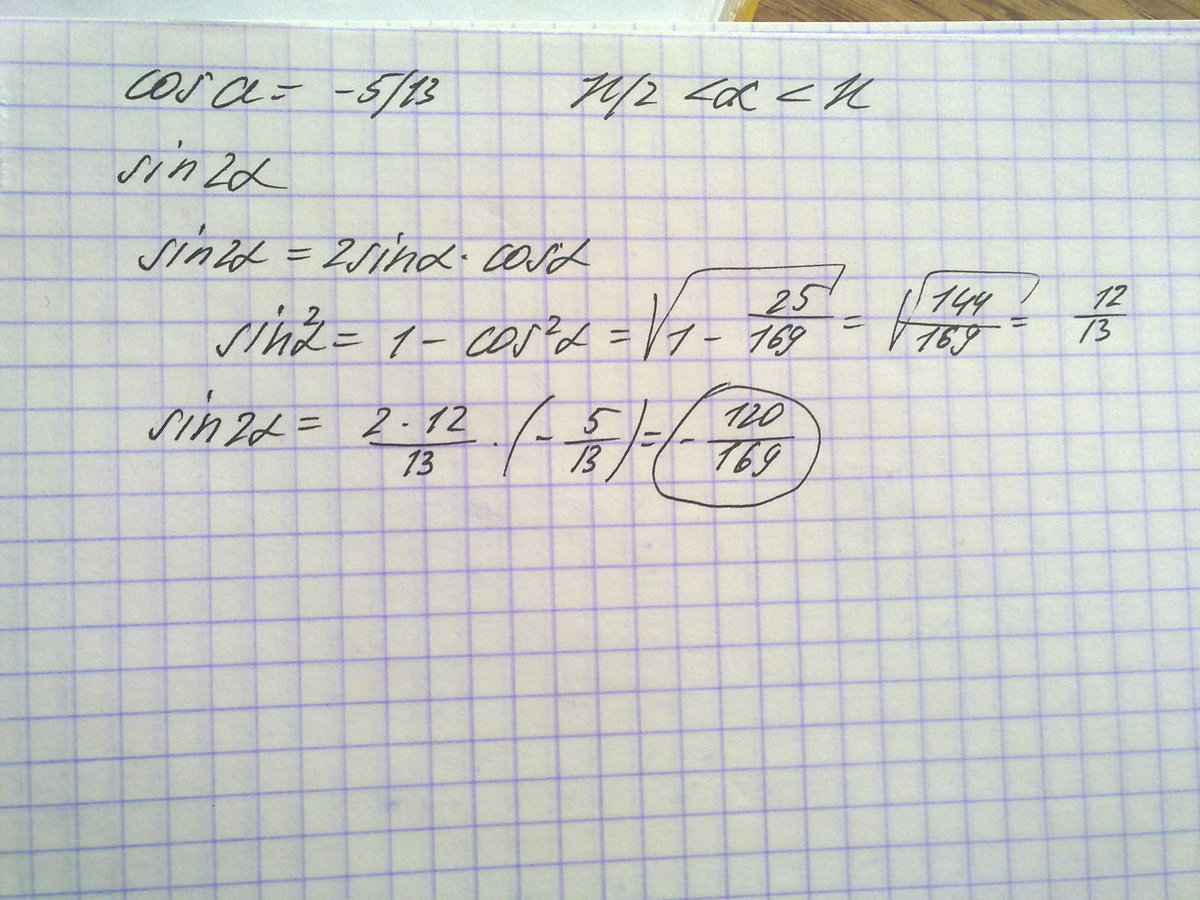 cos α = -5/13 π/2 < α < π
sin 2α
sin 2α = 2 sin α · cos α
sin²α = 1 - cos²α = √(1 - 25/169) = √(144/169) = 12/13
sin 2α = 2 · 12/13 · (- 5/13) = - 120/169